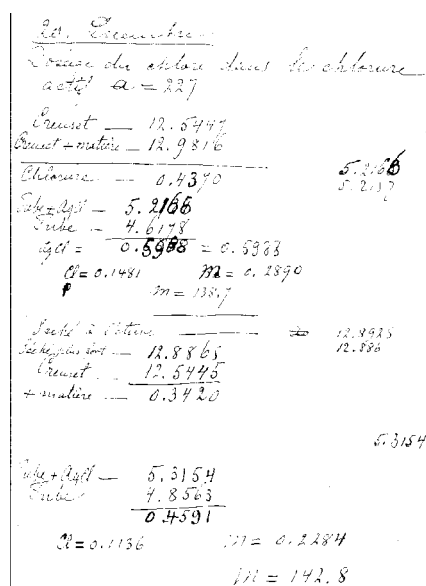 20. Décembre
Dosage du chlore dans le chlorure
actif a = 227
Creuset — 12.5447
Creuset + matière — 12.9816
Chlorure — 0.4370
5.2166
5.2137
Tube + AgCl — 5.2166
Tube — 4.6178
AgCl = 0.5988 = 0.5988
Cl = 0.1481 M = 0.2890
m = 138.7
Séché à l'étuve — 12.8925
12.886
Séché plus fort — 12.8865
Creuset — 12.5445
+ matière — 0.3420
5.3154
Tube + AgCl — 5.3154
Tube 4.8563
0.4591
Cl = 0.1136 M = 0.2284
M = 142.8